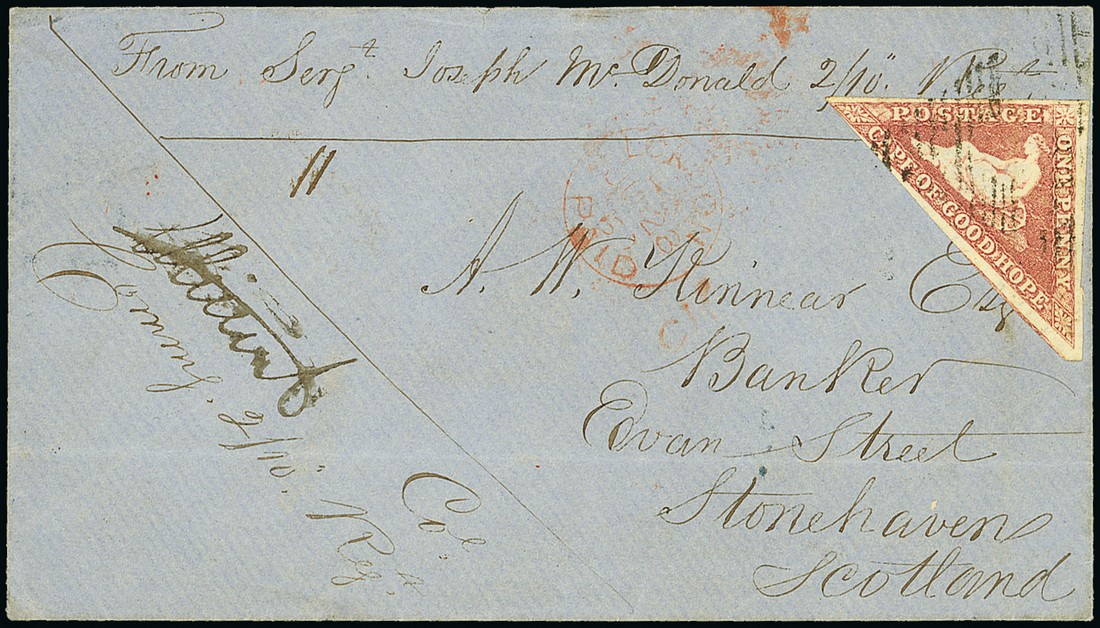 From Serjt. Joseph McDonald 2/10" Regt.
POSTAGE
CAPE OF GOOD HOPE
ONE PENNY
11
LONDON
PAID
A. W. Kinnear Esq
Banker
Evan Street
Stonehaven
Scotland
Col.
Commg. 2/10. Regt.